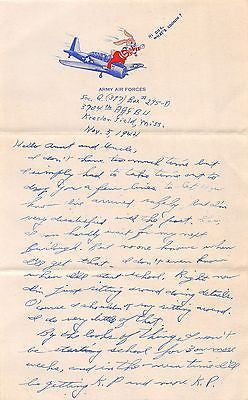 HI DOC,
WHAT'S COOKIN'?
ARMY AIR FORCES
Sec. Q. (397) Box# 295-D
3704th AAF BU
Keesler Field, Miss.
Nov. 5, 1944
Hello Aunt and Uncle,
I don't have too much time but
I simply had to take time out to
drop you a few lines to let you
know I've arrived safely but I'm
very dissatisfied with the post. I
can hardly wait for my next
furlough. But no one knows when
I'll get that. I don't even know
when I'll start school. Right now
I'm just sitting around doing details.
O'course I shouldn't say sitting around.
I do very little of that.
By the looks of things I won't
be starting school for 3 or more
weeks, and in the mean time I'll
be getting K.P and more K.P.